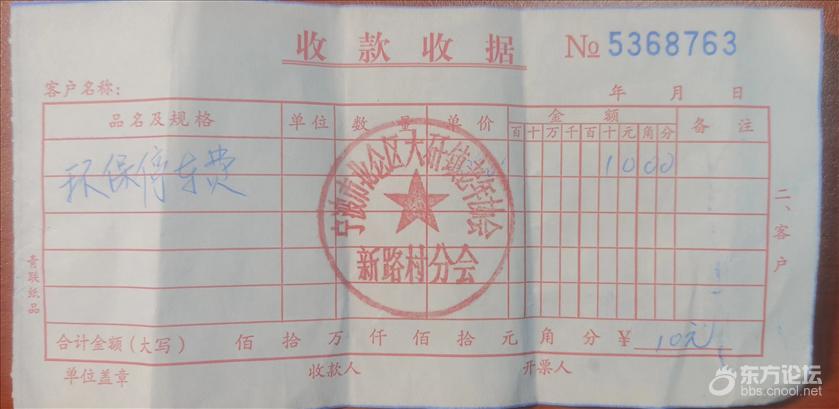 收款收据 № 5368763
客户名称： 年 月 日
品名及规格 单位 数量 单价 金额 备注
百十万千百十元角分
环保停车费 1000
宁波市北仑区大碶镇老年协会
新路村分会
二、客户
青联纸品
合计金额（大写） 佰 拾 万 仟 佰 拾 元 角 分 ￥ 10元
单位盖章 收款人 开票人
东方论坛
bbs.cnool.net